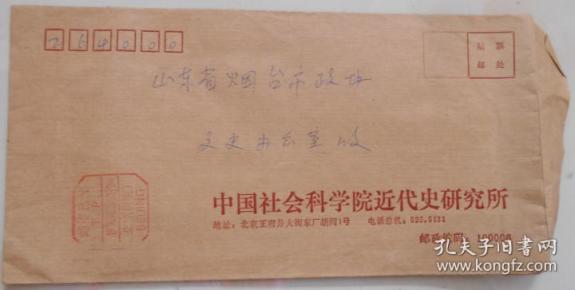 264000
贴票
邮处
山东省烟台市政协
文史办公室收
BEIJING
中国社会科学院近代史研究所
地址：北京王府井大街东厂胡同1号 电话总机：525.5131
邮政编码：100006
孔夫子旧书网